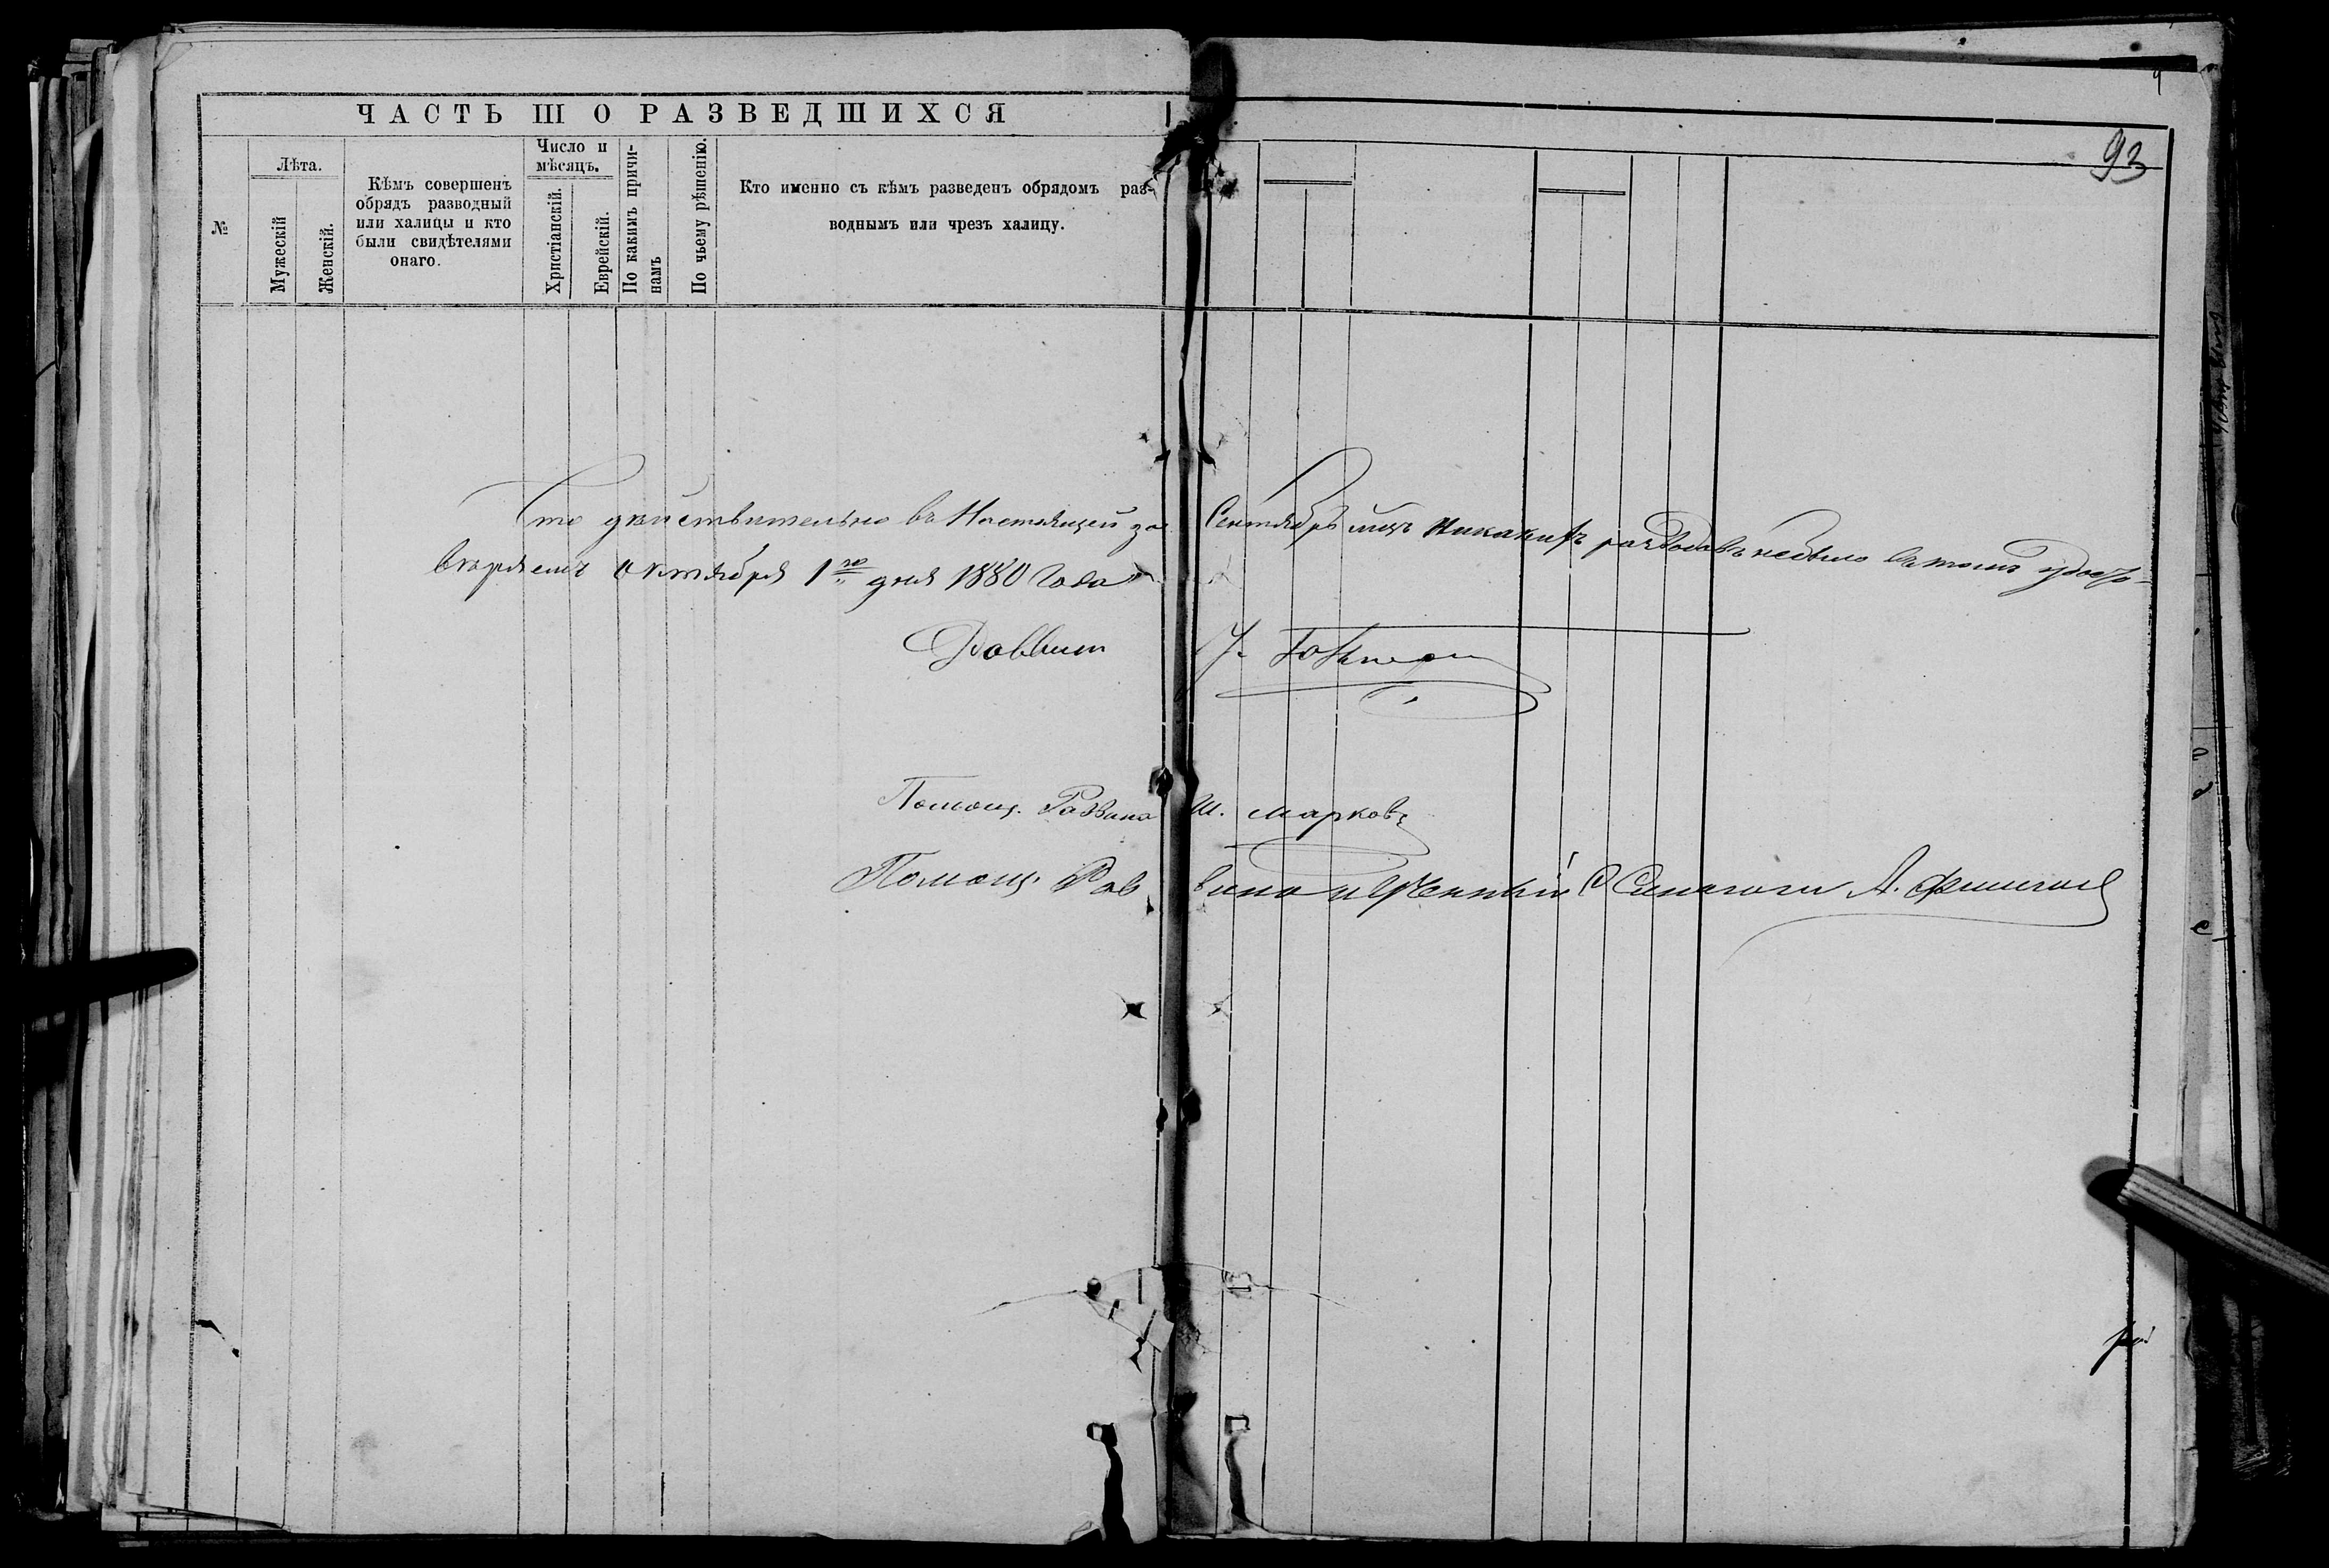 ЧАСТЬ III О РАЗВЕДШИХСЯ
93
№
Лѣта.
Мужескій
Женскій.
Кѣмъ совершенъ
обрядъ разводный
или халицы и кто
были свидѣтелями
онаго.
Число и
мѣсяцъ.
Христіанскій.
Еврейскій.
По какимъ причи-
намъ
По чьему рѣшенію.
Кто именно съ кѣмъ разведенъ обрядомъ раз-
воднымъ или чрезъ халицу.
Что дѣйствительно въ Настоящей за Сентябрь мцъ Никакихъ разводовъ небыло въ томъ удосто-
вѣряемъ Октября 1го дня 1880 Года
Раввин
Помощ. Раввина Ш. Марковъ
Помощ. Раввина и Ученный Синагоги А.